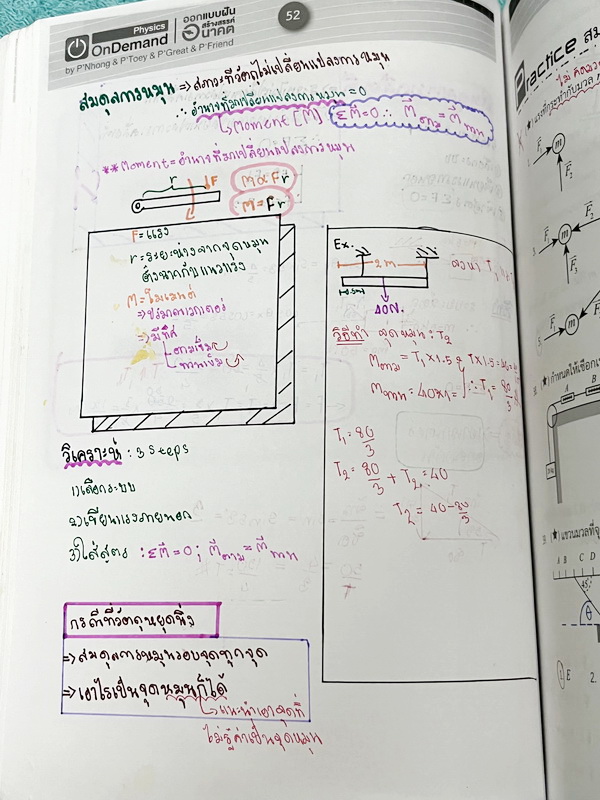 Physics
OnDemand
ออกแบบฝัน
สร้างสรรค์
อนาคต
by P'Nhong & P'Toey & P'Great & P'Friend
52
สมดุลการหมุน => สภาวะที่วัตถุไม่เปลี่ยนแปลงการหมุน
∴ อำนาจที่มาเปลี่ยนแปลงการหมุน = 0
Moment [M] ΣM = 0 ∴ M ตาม = M ทวน
**Moment = อำนาจที่มาเปลี่ยนแปลงการหมุน
r F M ∝ Fr
M = Fr
F = แรง
r = ระยะห่างจากจุดหมุน
ตั้งฉากกับแนวแรง
M = โมเมนต์
=> ปริมาณเวกเตอร์
=> มีทิศ
ตามเข็ม
ทวนเข็ม
วิเคราะห์ : 3 Steps
1) เลือกระบบ
2) เขียนแรงภายนอก
3) ใส่สูตร : ΣM = 0 ; M ตาม = M ทวน
กรณีที่วัตถุหยุดนิ่ง
=> สมดุลการหมุนรอบจุดทุกจุด
=> เอาไรเป็นจุดหมุนก็ได้
แนะนำเอาจุดที่
ไม่รู้ค่าเป็นจุดหมุน
Ex.
2 m
40 N.
วิธีทำ จุดหมุน : T2
M ตาม = T1 × 1.5
M ทวน = 40 × 1 ∴ T1 = 80/3
T1 = 80/3
T2 = 80/3 + T2 = 40
T2 = 40 - 80/3
Practice
F1 m F2
F1 m F2
F3
F1 m
A B
A B C D
45°
θ
E 2.